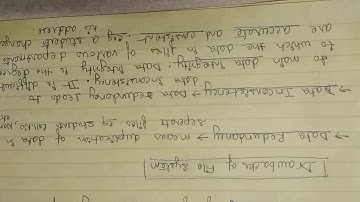 Drawbacks of File System
→ Data Redundancy → means duplication of data in
seperate files. eg. student exists,
→ Data Inconsistency → Data redundancy leads to
data inconsistency. It is difficult
to main data integrity. Data integrity is the degree
to which the data in files of various departments
are accurate and consistent. eg. a student change
his address